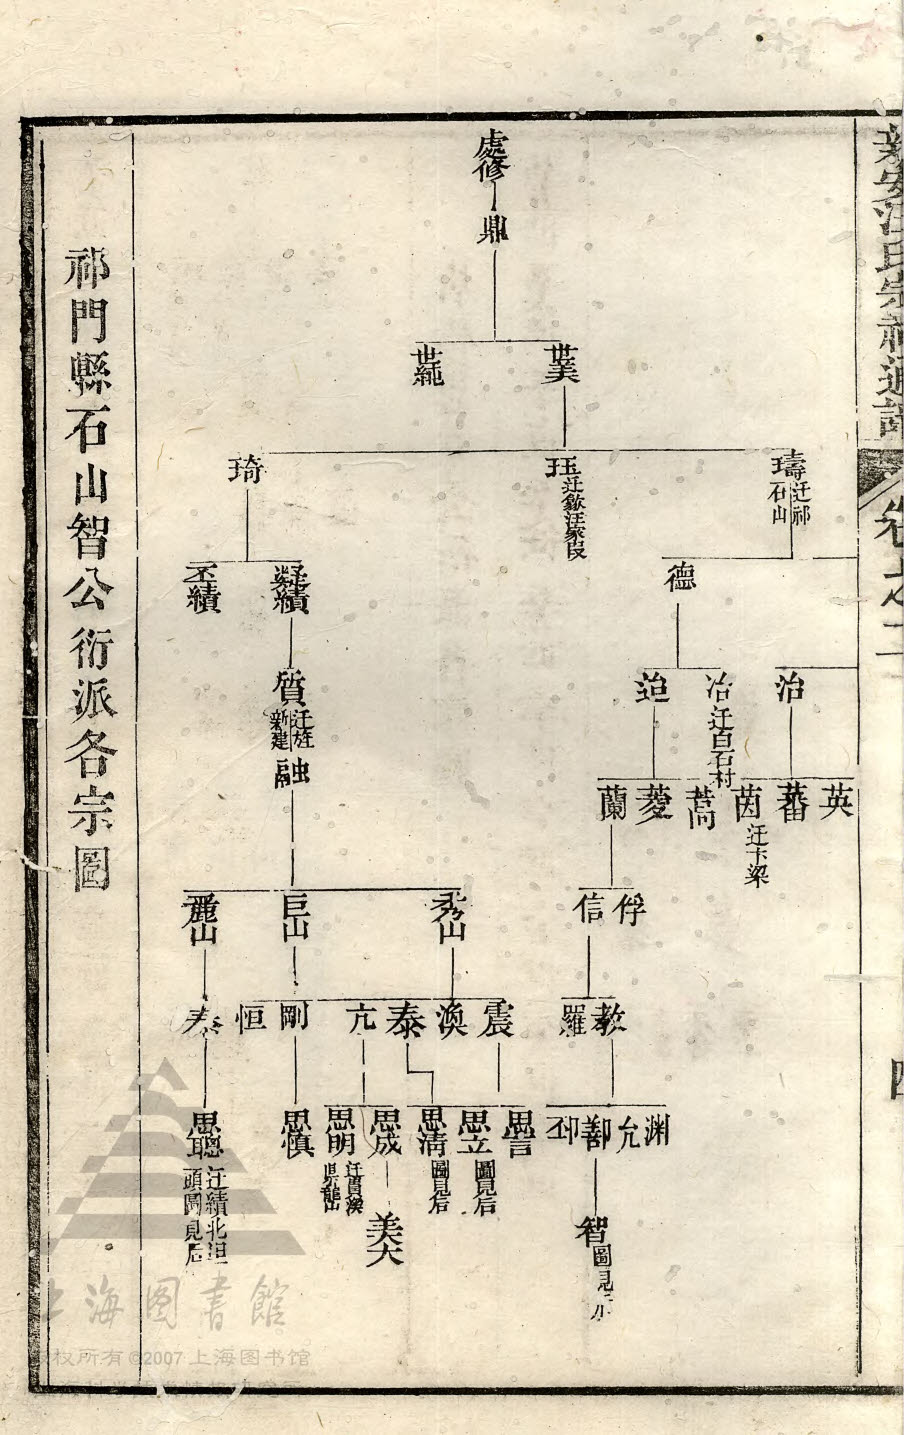 新安汪氏宗祠通譜
卷之二
四
處修
鼎
世美 世純
璹 迁祁石山
珏 迁歙汪家段
琦
德
凝績 丕績
治
冶 迁百石村
迨
質 迁旌新建
融
英 蕃
茵 迁卞梁
蒿 菱 蘭
俘 信
秀山 巨山 麗山
教 羅
震 渙 泰 亢 剛 恒 泰
渊 允 鄯 邳
思言
思立 圖見后
思清 圖見后
思成
思明 迁貴溪県龍山
思慎
思聰 迁績北坦頭圖見后
智 圖見
美大
祁門縣石山智公衍派各宗圖
上海图書館
版权所有©2007上海图书馆